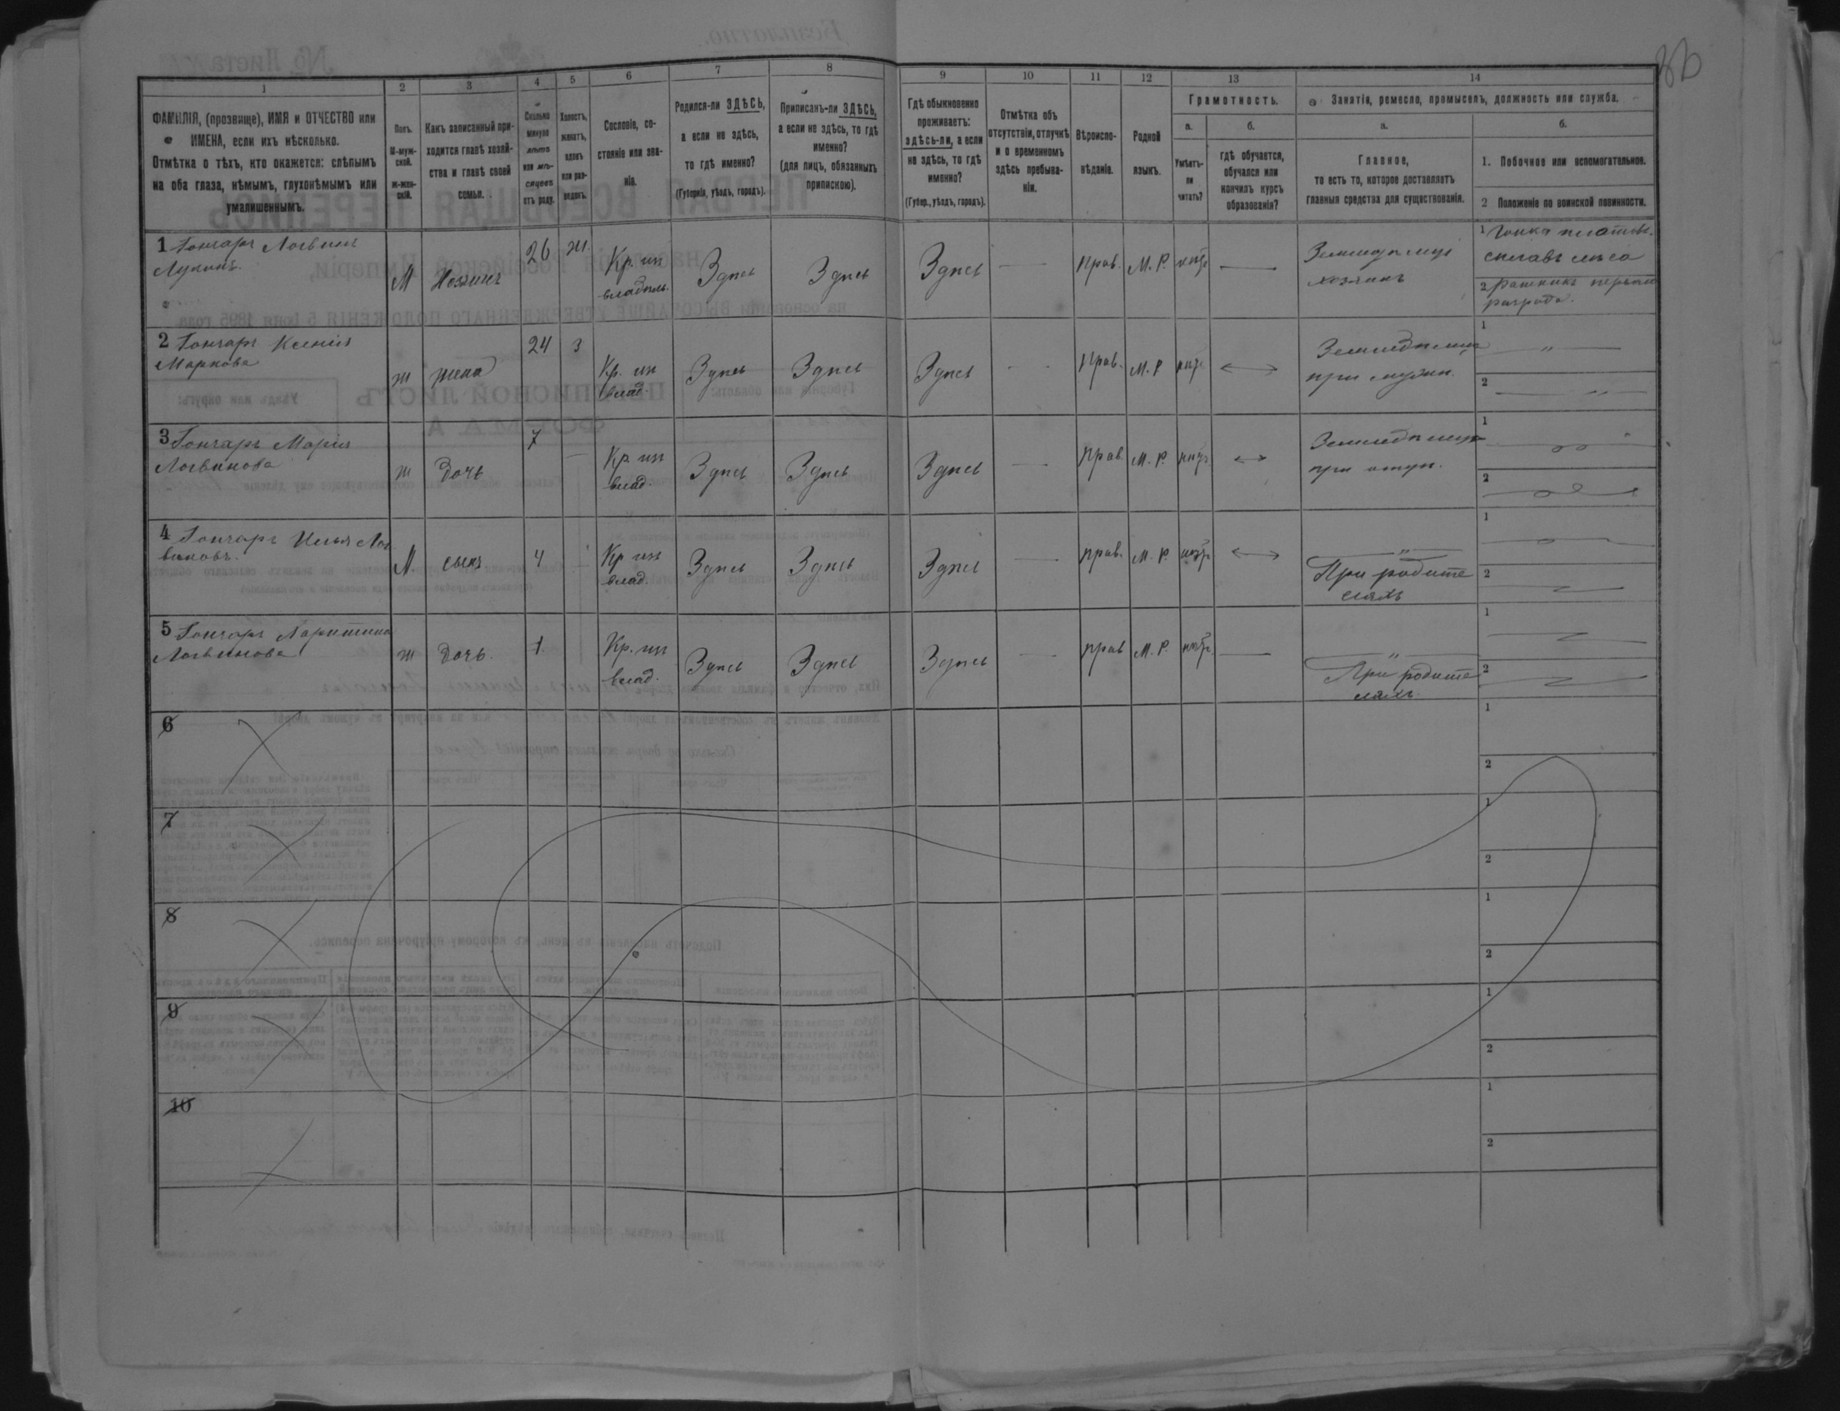 1 2 3 4 5 6 7 8 9 10 11 12 13 14
ФАМИЛІЯ, (прозвище), ИМЯ и ОТЧЕСТВО или
ИМЕНА, если ихъ нѣсколько.
Отмѣтка о тѣхъ, кто окажется: слѣпымъ
на оба глаза, нѣмымъ, глухонѣмымъ или
умалишеннымъ.
Полъ.
М-муж-
ской.
Ж-жен-
скій.
Какъ записанный при-
ходится главѣ хозяй-
ства и главѣ своей
семьи.
Сколько
минуло
лѣтъ
или мѣ-
сяцевъ
отъ роду.
Холостъ,
женатъ,
вдовъ
или раз-
веденъ.
Сословіе, со-
стояніе или зва-
ніе.
Родился-ли ЗДѢСЬ,
а если не здѣсь,
то гдѣ именно?
(Губернія, уѣздъ, городъ).
Приписанъ-ли ЗДѢСЬ,
а если не здѣсь, то гдѣ
именно?
(для лицъ, обязанныхъ
припискою).
Гдѣ обыкновенно
проживаетъ:
здѣсь-ли, а если
не здѣсь, то гдѣ
именно?
(Губер., уѣздъ, городъ).
Отмѣтка объ
отсутствіи, отлучкѣ
и о временномъ
здѣсь пребыва-
ніи.
Вѣроиспо-
вѣданіе.
Родной
языкъ.
Грамотность.
а.
Умѣетъ-
ли
читать?
б.
гдѣ обучается,
обучался или
кончилъ курсъ
образованія?
Занятіе, ремесло, промыселъ, должность или служба.
а.
Главное,
то есть то, которое доставляетъ
главныя средства для существованія.
б.
1. Побочное или вспомогательное.
2 Положеніе по воинской повинности.
1 Гончаръ Логвинъ
М Хозяинъ 26 ж. Кр. из
владѣль. Здѣсь Здѣсь Здѣсь — прав. М. Р. нѣтъ —
Земледѣлецъ
хозяинъ
1
сплавъ лѣса
2
разряда.
2 Гончаръ Ксенія
Маркова
ж жена 24 з Кр. из
влад. Здѣсь Здѣсь Здѣсь - - Прав. М. Р нѣтъ
Земледѣлица
при мужѣ.
1 "
2 "
3 Гончаръ Марія
Логвинова
ж Дочь 7 — Кр из
влад. Здѣсь Здѣсь Здѣсь — прав М. Р. нѣтъ
при отцѣ.
1
2
4 Гончаръ Илья Лог
виновъ.
М. сынъ 4 — Кр из
влад. Здѣсь Здѣсь Здѣсь — прав. М. Р. нѣтъ
"
При родите
ляхъ
1
2
5 Гончаръ
Логвинова
ж Дочь. 1 Кр. из
влад. Здѣсь Здѣсь Здѣсь — прав М. Р. нѣтъ —
"
При родите
ляхъ
1
2
6
1
2
7
1
2
8
1
2
9
1
2
10
1
2